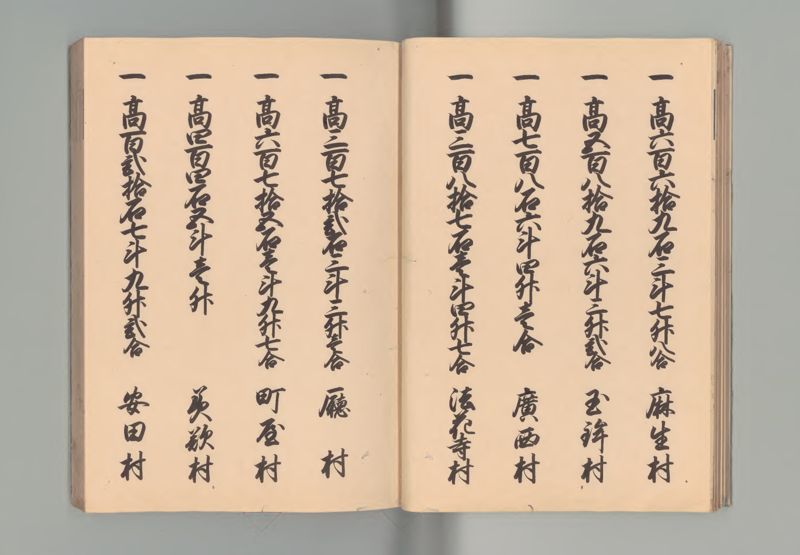 一 高六百六拾九石三斗七升八合 麻生村
一 高五百八拾九石六斗三升貳合 玉鉾村
一 高七百八石六斗四升壱合 廣西村
一 高三百八拾七石壱斗四升七合 法花寺村
一 高三百七拾貳石三斗三升壱合 廳村
一 高六百七拾五石壱斗九升七合 町屋村
一 高四百四石五斗壱升 美歎村
一 高百貳拾石七斗九升貳合 安田村